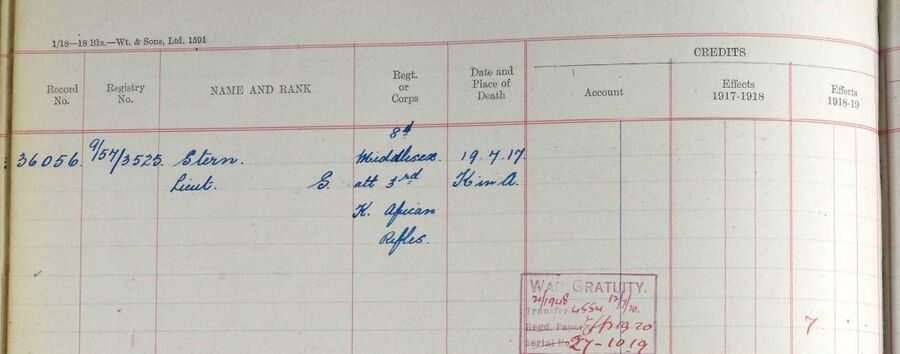 1/18—18 Bks.—Wt. & Sons, Ltd. 1591
CREDITS
Record No.
Registry No.
NAME AND RANK
Regt. or Corps
Date and Place of Death
Account
Effects 1917-1918
Effects 1918-19
8th
36056. 9/57/3525. Stern. Middlesex 19.7.17.
Lieut. G. att 3rd K in A.
K. African
Rifles.
WAR GRATUITY.
Transfer 4554
Regd. Paper
7
Serial No. 27-10.19